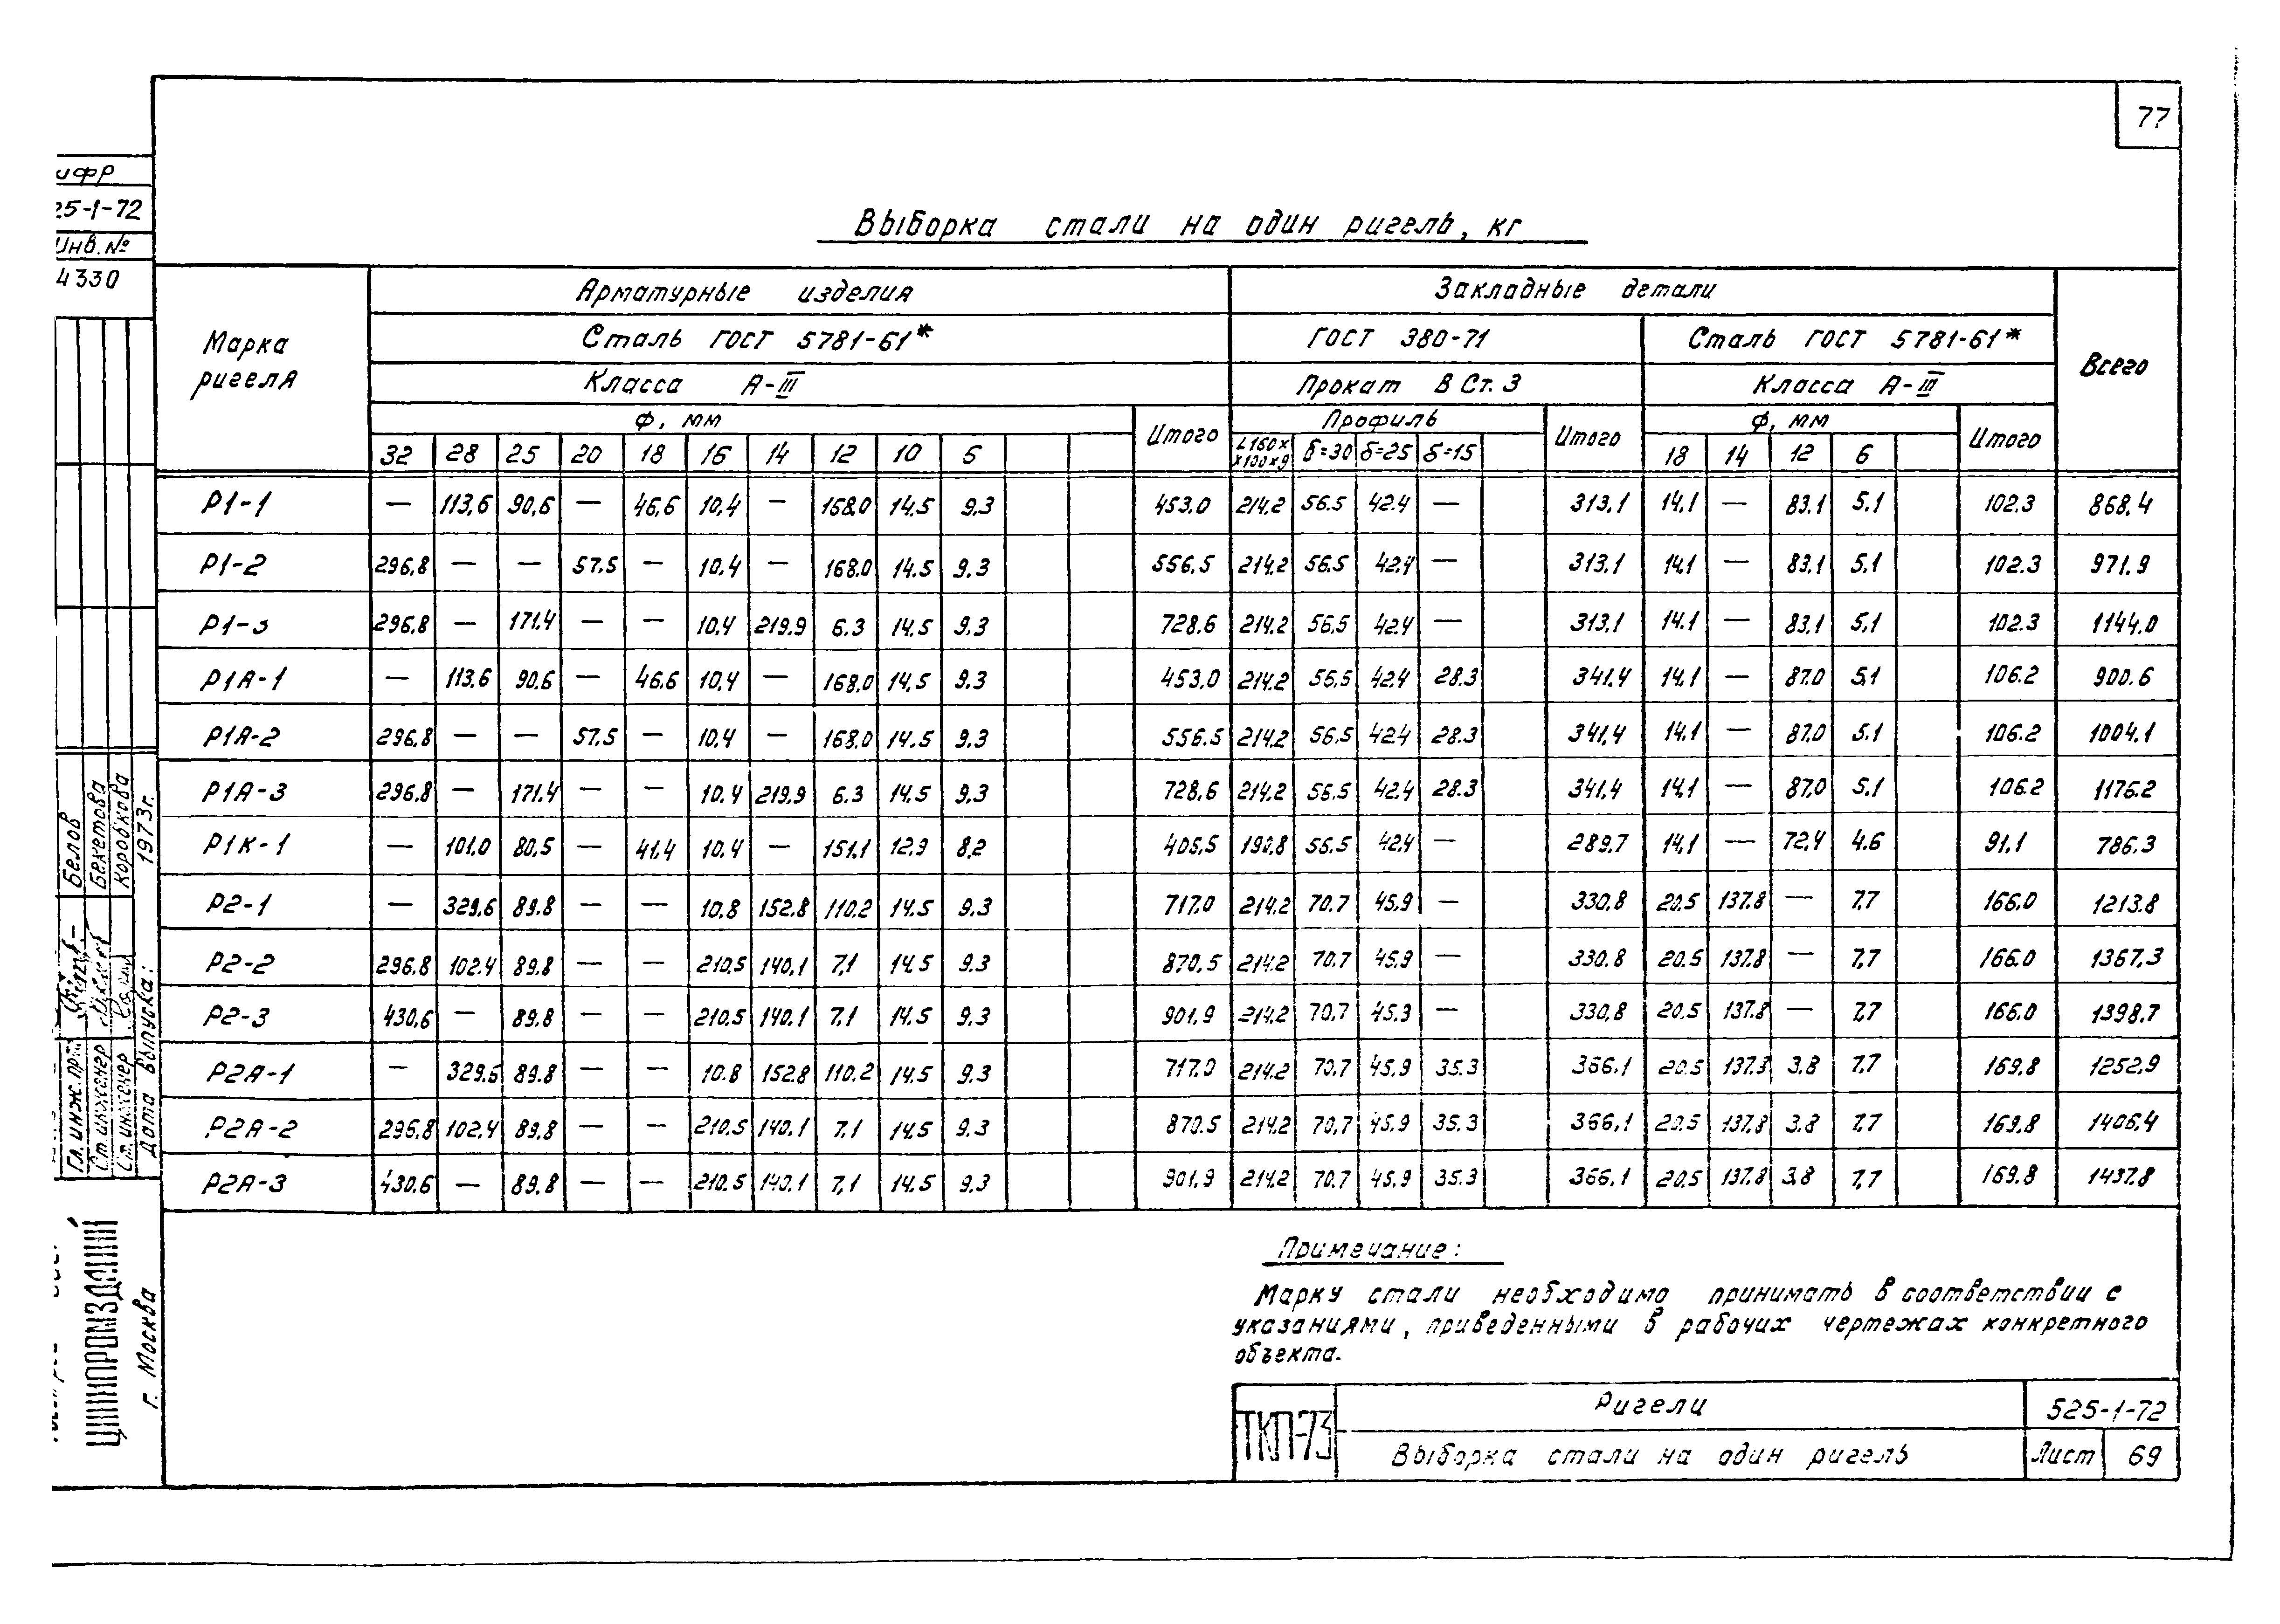 77
25-1-72
Инв. №
4330
Выборка стали на один ригель, кг
Марка ригеля
Арматурные изделия
Закладные детали
Всего
Сталь ГОСТ 5781-61*
ГОСТ 380-71
Сталь ГОСТ 5781-61*
Класса А-III
Прокат В Ст. 3
Класса А-III
Ф, мм
Итого
Профиль
Итого
Ф, мм
Итого
32 28 25 20 18 16 14 12 10 6
L160× ×100×9 δ=30 δ=25 δ=15
18 14 12 6
Р1-1 — 113,6 90,6 — 46,6 10,4 — 168.0 14,5 9.3 453.0 214.2 56.5 42.4 — 313,1 14,1 — 83.1 5.1 102.3 868,4
Р1-2 296,8 — — 57.5 — 10.4 — 168.0 14.5 9.3 556.5 214.2 56.5 42.4 — 313,1 14,1 — 83.1 5.1 102.3 971.9
Р1-3 296,8 — 171.4 — — 10.4 219.9 6.3 14.5 9.3 728.6 214.2 56,5 42.4 — 313,1 14.1 — 83,1 5,1 102.3 1144.0
Р1А-1 — 113.6 90.6 — 46.6 10,4 — 168.0 14,5 9.3 453,0 214.2 56,5 42.4 28.3 341.4 14.1 — 87.0 5,1 106.2 900.6
Р1А-2 296,8 — — 57.5 — 10,4 — 168.0 14.5 9.3 556.5 214.2 56,5 42.4 28.3 341,4 14,1 — 87.0 5.1 106.2 1004.1
Р1А-3 296.8 — 171.4 — — 10.4 219.9 6.3 14.5 9.3 728,6 214.2 56.5 42.4 28.3 341.4 14,1 — 87,0 5.1 106.2 1176.2
Р1К-1 — 101.0 80,5 — 41.4 10.4 — 151.1 12.9 8.2 405,5 190,8 56.5 42.4 — 289.7 14,1 — 72,4 4.6 91,1 786.3
Р2-1 — 329,6 89.8 — — 10,8 152.8 110.2 14.5 9.3 717.0 214.2 70.7 45,9 — 330,8 20.5 137.8 — 7,7 166.0 1213.8
Р2-2 296.8 102.4 89.8 — — 210,5 140,1 7,1 14.5 9.3 870,5 214.2 70.7 45.9 — 330.8 20.5 137.8 — 7,7 166.0 1367.3
Р2-3 430,6 — 89.8 — — 210,5 140.1 7,1 14.5 9.3 901,9 214.2 70.7 45.3 — 330,8 20.5 137.8 — 7,7 166.0 1398.7
Р2А-1 — 329.6 89.8 — — 10.8 152.8 110.2 14.5 9.3 717.0 214.2 70,7 45,9 35.3 366.1 20.5 137.3 3.8 7.7 169,8 1252.9
Р2А-2 296,8 102.4 89,8 — — 210.5 140.1 7,1 14.5 9.3 870.5 214.2 70,7 45.9 35.3 366,1 20.5 137,8 3.8 7,7 169,8 1406.4
Р2А-3 430.6 — 89.8 — — 210.5 140.1 7,1 14.5 9.3 901,9 214.2 70.7 45.9 35.3 366,1 20.5 137.8 3,8 7,7 169.8 1437.8
Примечание:
Марку стали необходимо принимать в соответствии с
указаниями, приведенными в рабочих чертежах конкретного
объекта.
ТКП-73
Ригели
525-1-72
Выборка стали на один ригель
Лист 69
Белов
Бекетова
Коробкова
1973г.
Гл.инж.пр.
Ст.инженер
Ст.инженер
Дата выпуска:
ЦНИИПРОМЗДАНИЙ
г. Москва